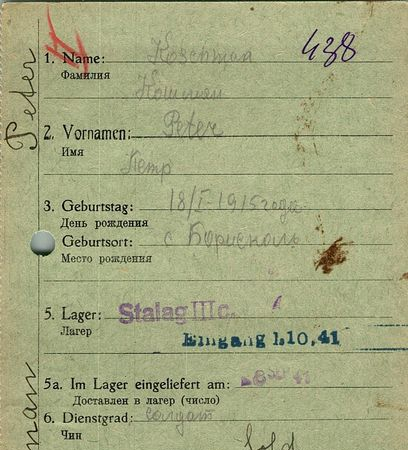 438
1. Name: Koschman
Фамилия
Кошман
2. Vornamen: Peter
Имя
Петр
3. Geburtstag: 18/I-1915 года
День рождения
Geburtsort: с Борисполь
Место рождения
5. Lager: Stalag III C.
Лагерь
Eingang 1.10.41
5a. Im Lager eingeliefert am: 41
Доставлен в лагерь (число)
6. Dienstgrad: солдат
Чин
Sold
Peter
mann